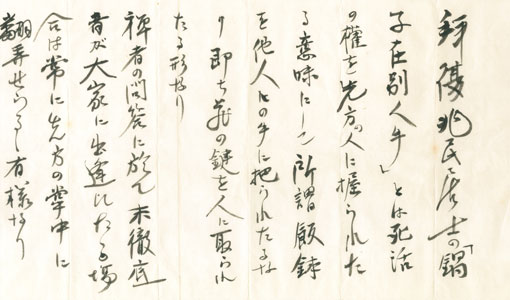 拝復兆民居士の「鍋
子在別人手」とは死活
の權を先方の人に握られた
る意味にして所謂飯鉢
を他人の手に把られたるな
り即ち蔵の鍵を人に取られ
たる形なり
禅者の問答に於て未徹底
者が大家に出逢ひたる場
合は常に先方の掌中に
翻弄せらるゝ有様なり